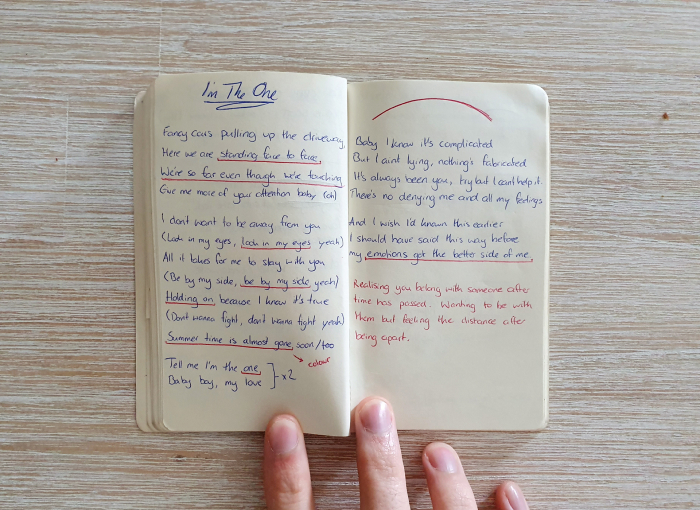 I'm The One
Fancy cars pulling up the driveway,
Here we are standing face to face,
We're so far even though we're touching
Give me more of your attention baby (oh)
I dont want to be away from you
(Look in my eyes, look in my eyes yeah)
All it takes for me to stay with you
(Be by my side, be by my side yeah)
Holding on because I know it's true
(Dont wanna fight, dont wana fight yeah)
Summer time is almost gone, soon/too
colour
Tell me I'm the one,
Baby boy, my love
x2
Baby I know it's complicated
But I aint lying, nothing's fabricated
It's always been you, I try but I cant help it.
There's no denying me and all my feelings
And I wish I'd known this earlier
I should have said this way before
my emotions got the better side of me.
Realising you belong with someone after
time has passed. Wanting to be with
them but feeling the distance after
being apart.